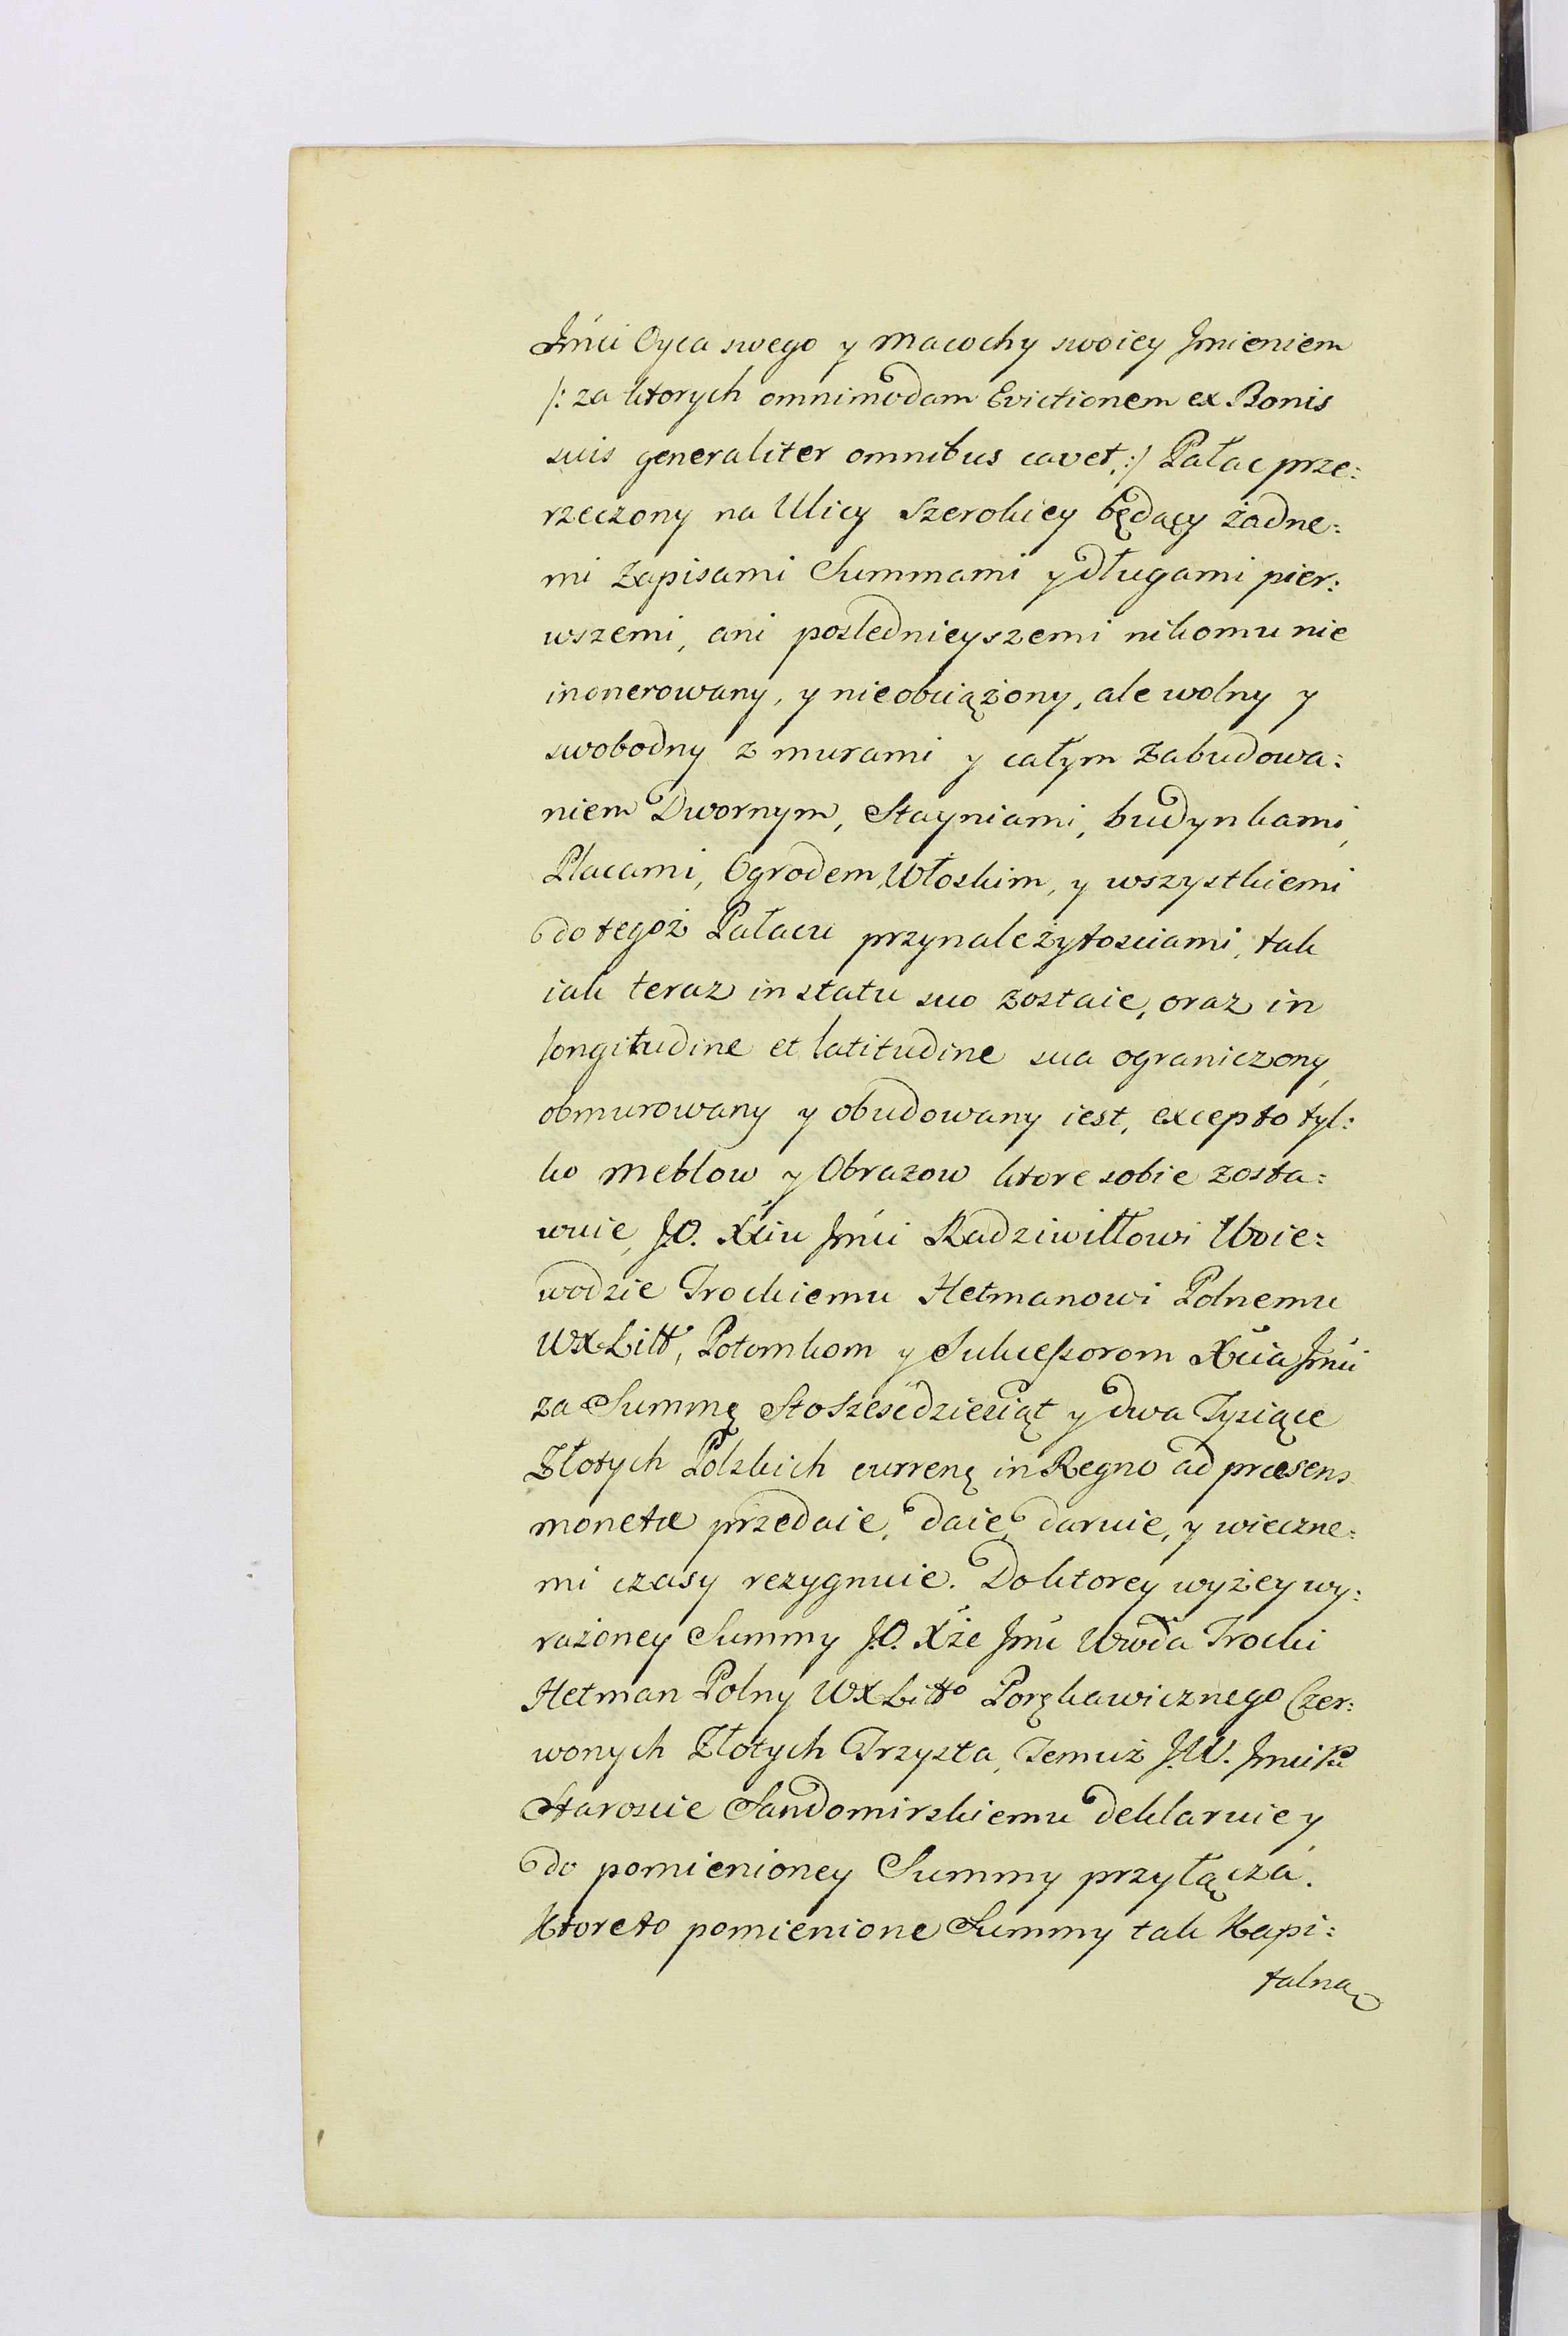 Jmći Oyca swego y Macochy swoiey Jmieniem
/: za ktorych omnimodam Evictionem ex Bonis
suis generaliter omnibus cavet, :/ Pałac prze:
rzeczony na Ulicy Szerokiey będący żadne:
mi Zapisami Summami y długami pier:
wszemi, ani poslednieyszemi nikomu nie
inonerowany, y nieobciążony, ale wolny y
swobodny z murami y całym Zabudowa:
niem Dwornym, Stayniami, budynkami,
Placami, Ogrodem Włoskim, y wszystkiemi
do tegoż Pałacu przynależytosciami, tak
iak teraz in statu suo zostaie, oraz in
longitudine et latitudine sua ograniczony,
obmurowany y obudowany iest, excepto tyl:
ko Meblow y Obrazow ktore sobie zosta:
wuie, J.O. Xciu Jmći Radziwiłłowi Woie:
wodzie Trockiemu Hetmanowi Polnemu
WXLitt, Potomkom y Sukcessorom Xcia Jmći
za Summę Sto Szesćdziesiąt y dwa Tysiące
Złotych Polskich currenę in Regno ad præsens
monetæ przedaie, daie, daruie, y wieczne:
mi czasy rezygnuie. Do ktorey wyżey wy:
rażoney Summy J.O. Xże Jmć Wwda Trocki
Hetman Polny WXLitto Porękawicznego Czer:
wonych Złotych Trzysta, Temuż J.W. Jmci Pu
Staroscie Sandomirskiemu deklaruie y
do pomienioney Summy przyłącza.
Ktoreto pomienione Summy tak Kapi:
talną